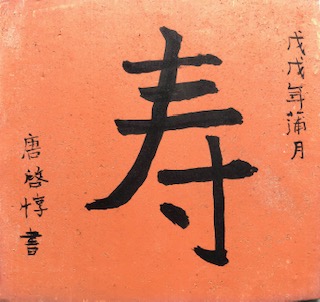 戊戌年蒲月
寿
唐啓惇書